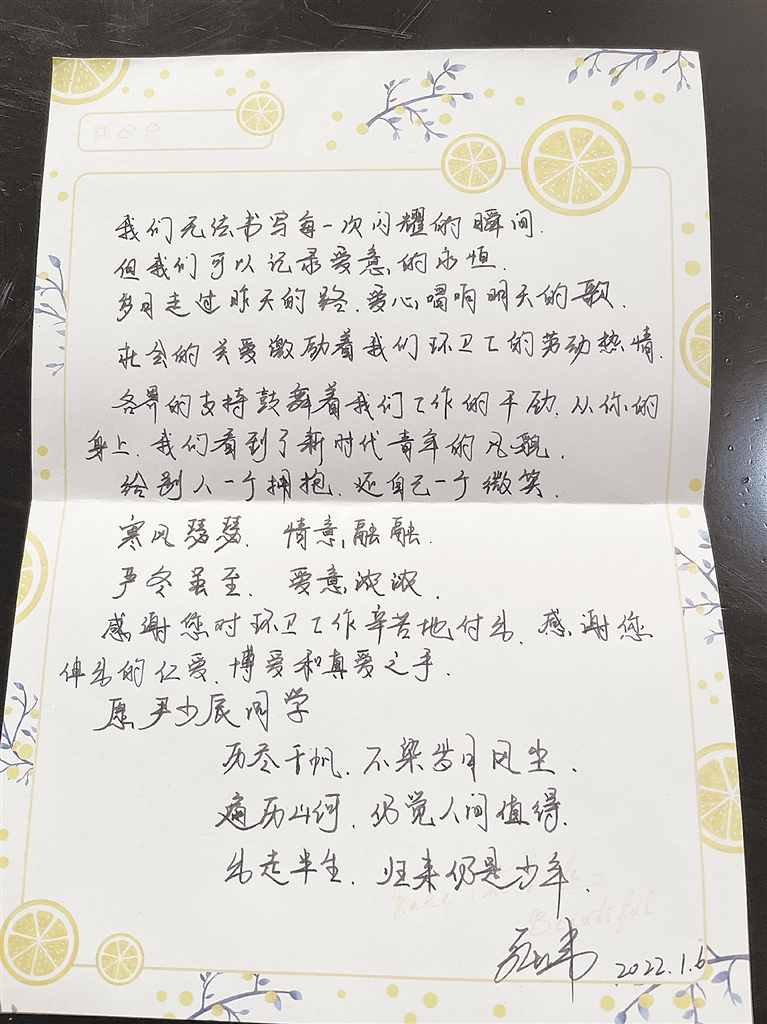 我们无法书写每一次闪耀的瞬间.
但我们可以记录爱意的永恒.
岁月走过昨天的路.爱心唱响明天的歌.
社会的关爱激励着我们环卫工的劳动热情.
各界的支持鼓舞着我们工作的干劲.从你的
身上.我们看到了新时代青年的风貌.
给别人一个拥抱.还自己一个微笑.
寒风瑟瑟.情意融融.
严冬虽至.爱意浓浓.
感谢您对环卫工作辛苦地付出.感谢您
伸出的仁爱.博爱和真爱之手.
愿尹少辰同学
历尽千帆.不染岁月风尘.
遍历山河.仍觉人间值得.
出走半生.归来仍是少年.
Make
Beautiful
2022.1.6